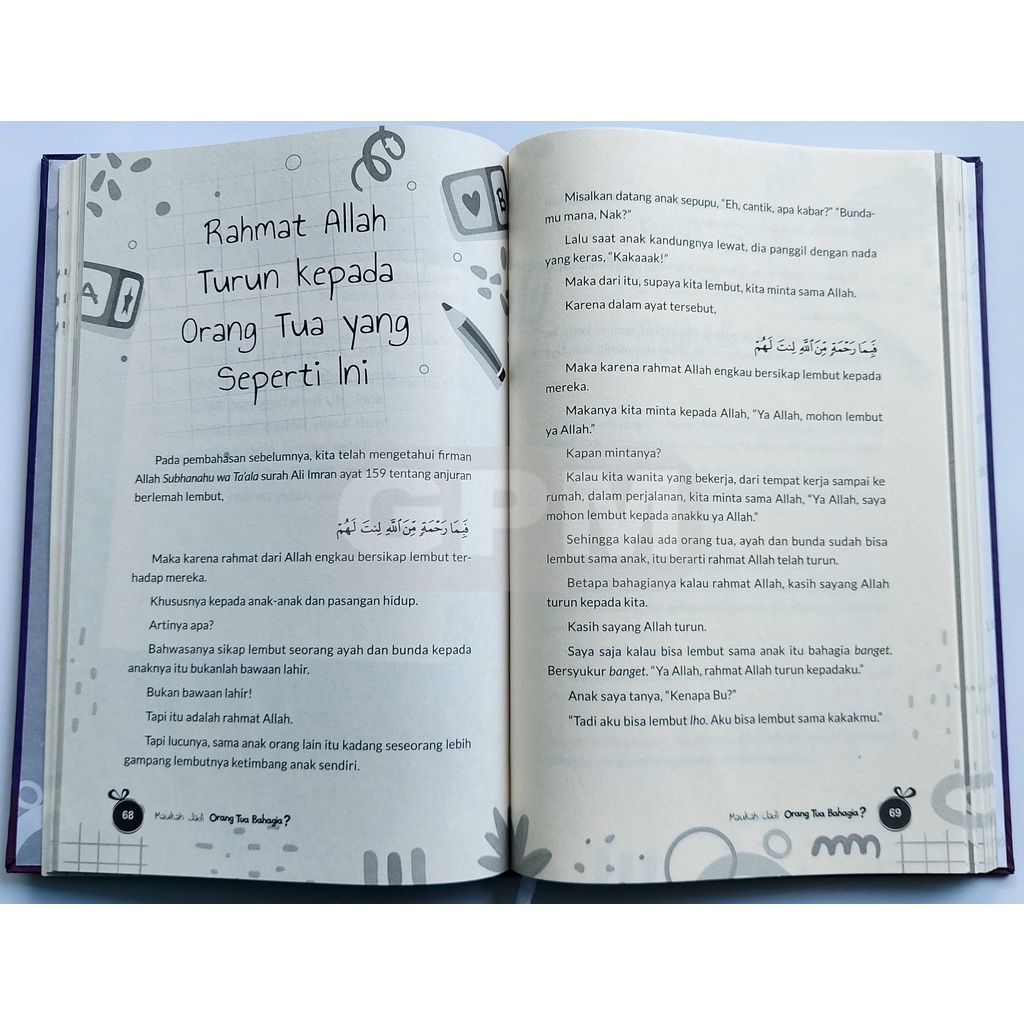 Rahmat Allah
Turun kepada
Orang Tua yang
Seperti Ini
Pada pembahasan sebelumnya, kita telah mengetahui firman
Allah Subhanahu wa Ta'ala surah Ali Imran ayat 159 tentang anjuran
berlemah lembut,
فَبِمَا رَحْمَةٍ مِّنَ ٱللَّهِ لِنتَ لَهُمْ
Maka karena rahmat dari Allah engkau bersikap lembut ter-
hadap mereka.
Khususnya kepada anak-anak dan pasangan hidup.
Artinya apa?
Bahwasanya sikap lembut seorang ayah dan bunda kepada
anaknya itu bukanlah bawaan lahir.
Bukan bawaan lahir!
Tapi itu adalah rahmat Allah.
Tapi lucunya, sama anak orang lain itu kadang seseorang lebih
gampang lembutnya ketimbang anak sendiri.
68 Maukah Jadi Orang Tua Bahagia?
Misalkan datang anak sepupu, "Eh, cantik, apa kabar?" "Bunda-
mu mana, Nak?"
Lalu saat anak kandungnya lewat, dia panggil dengan nada
yang keras, "Kakaaak!"
Maka dari itu, supaya kita lembut, kita minta sama Allah.
Karena dalam ayat tersebut,
فَبِمَا رَحْمَةٍ مِّنَ ٱللَّهِ لِنتَ لَهُمْ
Maka karena rahmat Allah engkau bersikap lembut kepada
mereka.
Makanya kita minta kepada Allah, "Ya Allah, mohon lembut
ya Allah."
Kapan mintanya?
Kalau kita wanita yang bekerja, dari tempat kerja sampai ke
rumah, dalam perjalanan, kita minta sama Allah, "Ya Allah, saya
mohon lembut kepada anakku ya Allah."
Sehingga kalau ada orang tua, ayah dan bunda sudah bisa
lembut sama anak, itu berarti rahmat Allah telah turun.
Betapa bahagianya kalau rahmat Allah, kasih sayang Allah
turun kepada kita.
Kasih sayang Allah turun.
Saya saja kalau bisa lembut sama anak itu bahagia banget.
Bersyukur banget. "Ya Allah, rahmat Allah turun kepadaku."
Anak saya tanya, "Kenapa Bu?"
"Tadi aku bisa lembut lho. Aku bisa lembut sama kakakmu."
Maukah Jadi Orang Tua Bahagia? 69
A
B
GPM